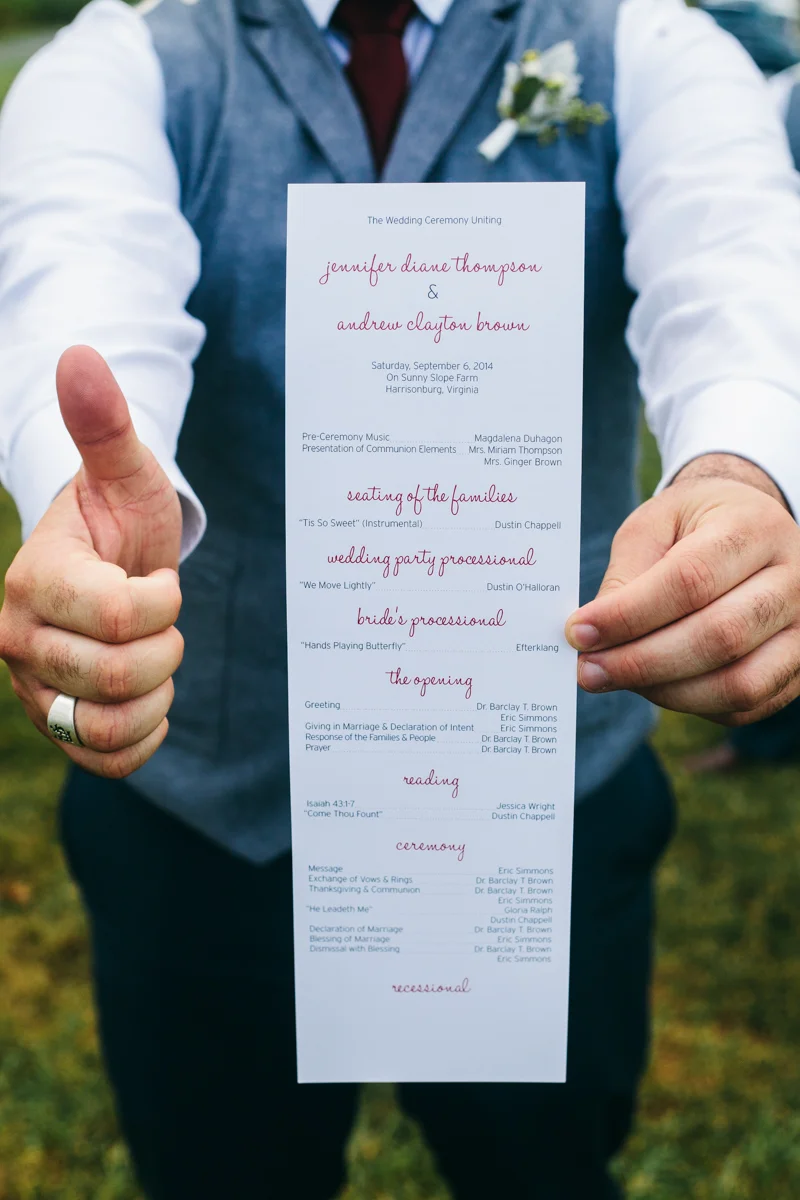 The Wedding Ceremony Uniting
jennifer diane thompson
&
andrew clayton brown
Saturday, September 6, 2014
On Sunny Slope Farm
Harrisonburg, Virginia
Pre-Ceremony Music Magdalena Duhagon
Presentation of Communion Elements Mrs. Miriam Thompson
Mrs. Ginger Brown
seating of the families
"Tis So Sweet" (Instrumental) Dustin Chappell
wedding party processional
"We Move Lightly" Dustin O'Halloran
bride's processional
"Hands Playing Butterfly" Efterklang
the opening
Greeting Dr. Barclay T. Brown
Eric Simmons
Giving in Marriage & Declaration of Intent Eric Simmons
Response of the Families & People Dr. Barclay T. Brown
Prayer Dr. Barclay T. Brown
reading
Isaiah 43:1-7 Jessica Wright
"Come Thou Fount" Dustin Chappell
ceremony
Message Eric Simmons
Exchange of Vows & Rings Dr. Barclay T. Brown
Thanksgiving & Communion Dr. Barclay T. Brown
Eric Simmons
"He Leadeth Me" Gloria Ralph
Dustin Chappell
Declaration of Marriage Dr. Barclay T. Brown
Blessing of Marriage Eric Simmons
Dismissal with Blessing Dr. Barclay T. Brown
Eric Simmons
recessional